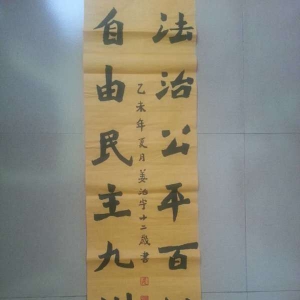 法治公平百
自由民主九
乙未年夏月姜泊宇十二歲書